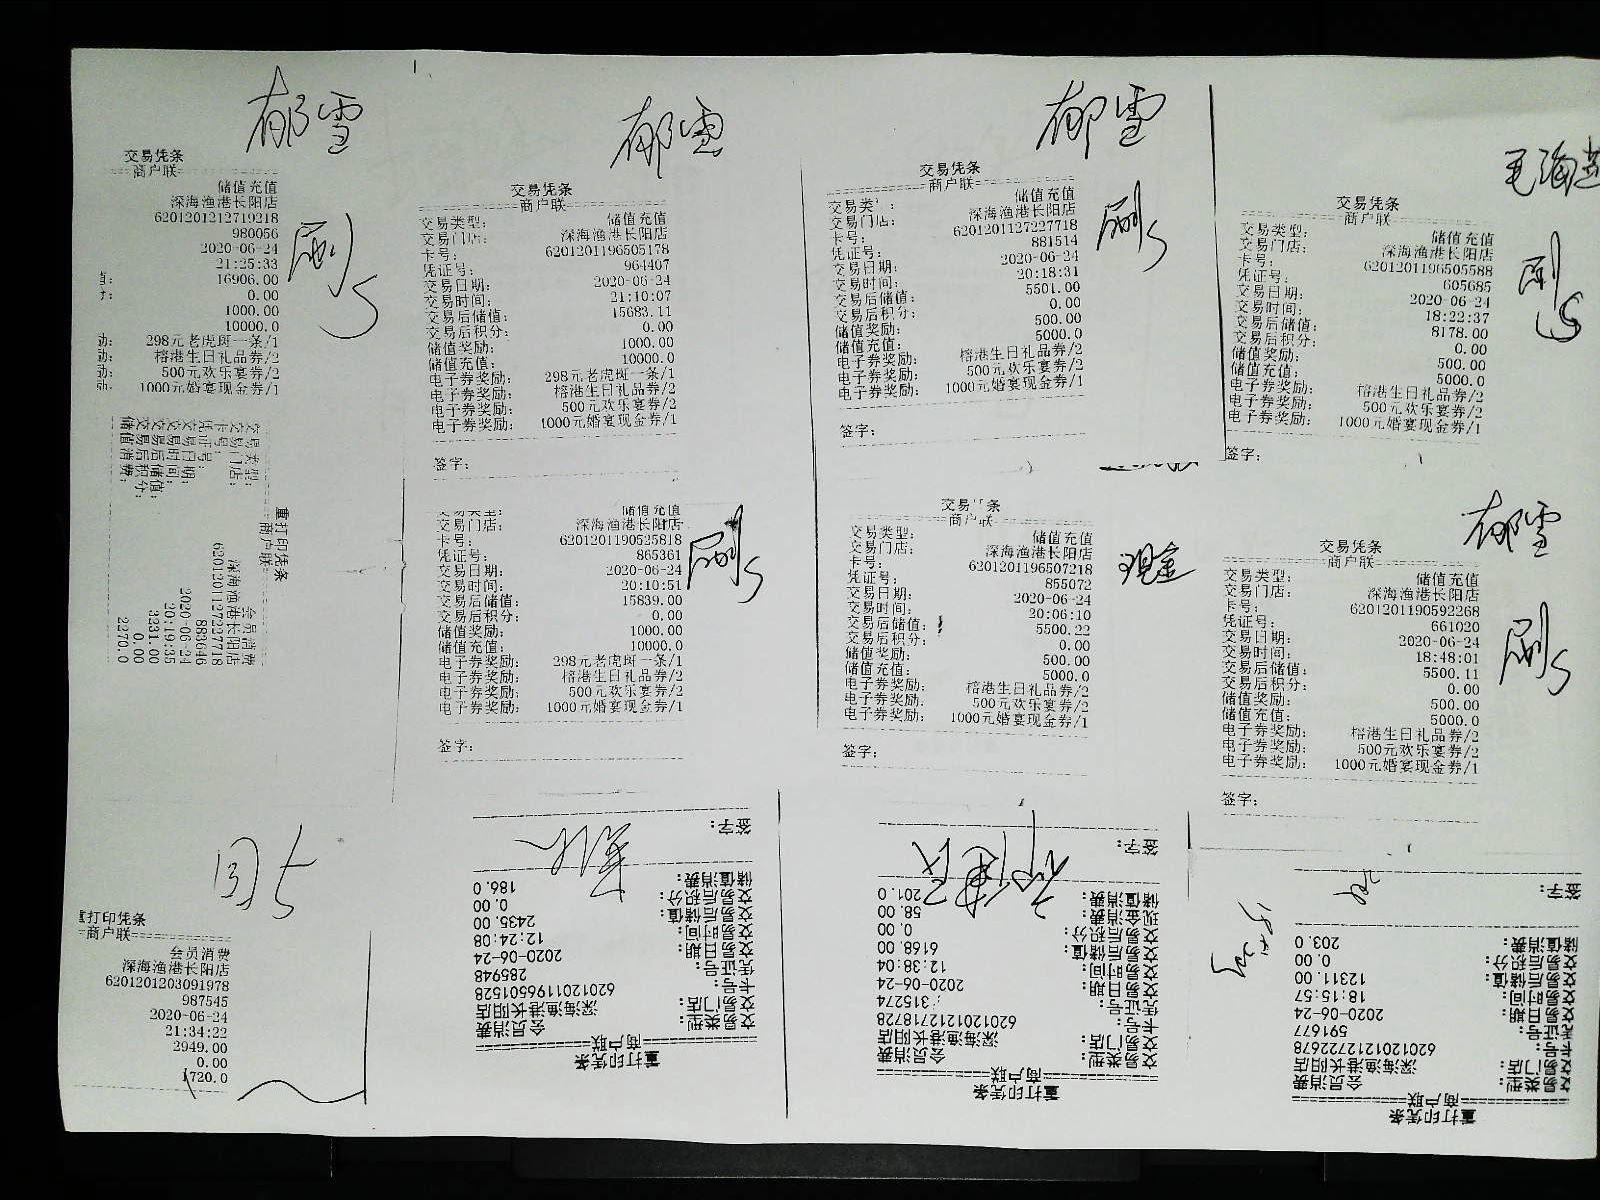 郁雪
交易凭条
商户联
储值充值
深海渔港长阳店
6201201212719218
980056
2020-06-24
21:25:33
16906.00
0.00
1000.00
10000.0
298元老虎斑一条/1
榕港生日礼品券/2
500元欢乐宴券/2
1000元婚宴现金券/1
刷
郁雪
交易凭条
商户联
交易类型: 储值充值
交易门店: 深海渔港长阳店
卡号: 6201201196505178
凭证号: 964407
交易日期: 2020-06-24
交易时间: 21:10:07
交易后储值: 15683.11
交易后积分: 0.00
储值奖励: 1000.00
储值充值: 10000.0
电子券奖励: 298元老虎斑一条/1
电子券奖励: 榕港生日礼品券/2
电子券奖励: 500元欢乐宴券/2
电子券奖励: 1000元婚宴现金券/1
签字:
郁雪
交易凭条
商户联
交易类型: 储值充值
交易门店: 深海渔港长阳店
卡号: 6201201127227718
凭证号: 881514
交易日期: 2020-06-24
交易时间: 20:18:31
交易后储值: 5501.00
交易后积分: 0.00
储值奖励: 500.00
储值充值: 5000.0
电子券奖励: 榕港生日礼品券/2
电子券奖励: 500元欢乐宴券/2
电子券奖励: 1000元婚宴现金券/1
签字:
刷
交易凭条
商户联
交易类型: 储值充值
交易门店: 深海渔港长阳店
卡号: 6201201196505588
凭证号: 605685
交易日期: 2020-06-24
交易时间: 18:22:37
交易后储值: 8178.00
交易后积分: 0.00
储值奖励: 500.00
储值充值: 5000.0
电子券奖励: 榕港生日礼品券/2
电子券奖励: 500元欢乐宴券/2
电子券奖励: 1000元婚宴现金券/1
签字:
刷
重打印凭条
商户联
交易类型: 会员消费
交易门店: 深海渔港长阳店
卡号: 6201201127227718
凭证号: 883646
交易日期: 2020-06-24
交易时间: 20:19:35
交易后储值: 3231.00
交易后积分: 0.00
储值消费: 2270.0
交易类型: 储值充值
交易门店: 深海渔港长阳店
卡号: 6201201190525818
凭证号: 865361
交易日期: 2020-06-24
交易时间: 20:10:51
交易后储值: 15839.00
交易后积分: 0.00
储值奖励: 1000.00
储值充值: 10000.0
电子券奖励: 298元老虎斑一条/1
电子券奖励: 榕港生日礼品券/2
电子券奖励: 500元欢乐宴券/2
电子券奖励: 1000元婚宴现金券/1
签字:
刷
交易凭条
商户联
交易类型: 储值充值
交易门店: 深海渔港长阳店
卡号: 6201201196507218
凭证号: 855072
交易日期: 2020-06-24
交易时间: 20:06:10
交易后储值: 5500.22
交易后积分: 0.00
储值奖励: 500.00
储值充值: 5000.0
电子券奖励: 榕港生日礼品券/2
电子券奖励: 500元欢乐宴券/2
电子券奖励: 1000元婚宴现金券/1
签字:
现金
郁雪
交易凭条
商户联
交易类型: 储值充值
交易门店: 深海渔港长阳店
卡号: 6201201190592268
凭证号: 661020
交易日期: 2020-06-24
交易时间: 18:48:01
交易后储值: 5500.11
交易后积分: 0.00
储值奖励: 500.00
储值充值: 5000.0
电子券奖励: 榕港生日礼品券/2
电子券奖励: 500元欢乐宴券/2
电子券奖励: 1000元婚宴现金券/1
签字:
刷
重打印凭条
商户联
会员消费
深海渔港长阳店
6201201203091978
987545
2020-06-24
21:34:22
2949.00
0.00
1720.0
重打印凭条
商户联
交易类型: 会员消费
交易门店: 深海渔港长阳店
卡号: 6201201196501528
凭证号: 285948
交易日期: 2020-06-24
交易时间: 12:24:08
交易后储值: 2435.00
交易后积分: 0.00
储值消费: 186.0
签字:
重打印凭条
商户联
交易类型: 会员消费
交易门店: 深海渔港长阳店
卡号: 6201201212718728
凭证号: 315274
交易日期: 2020-06-24
交易时间: 12:38:04
交易后储值: 6168.00
交易后积分: 0.00
现金消费: 58.00
储值消费: 201.0
签字:
重打印凭条
商户联
交易类型: 会员消费
交易门店: 深海渔港长阳店
卡号: 6201201212722678
凭证号: 591677
交易日期: 2020-06-24
交易时间: 18:15:57
交易后储值: 12311.00
交易后积分: 0.00
储值消费: 203.0
签字: